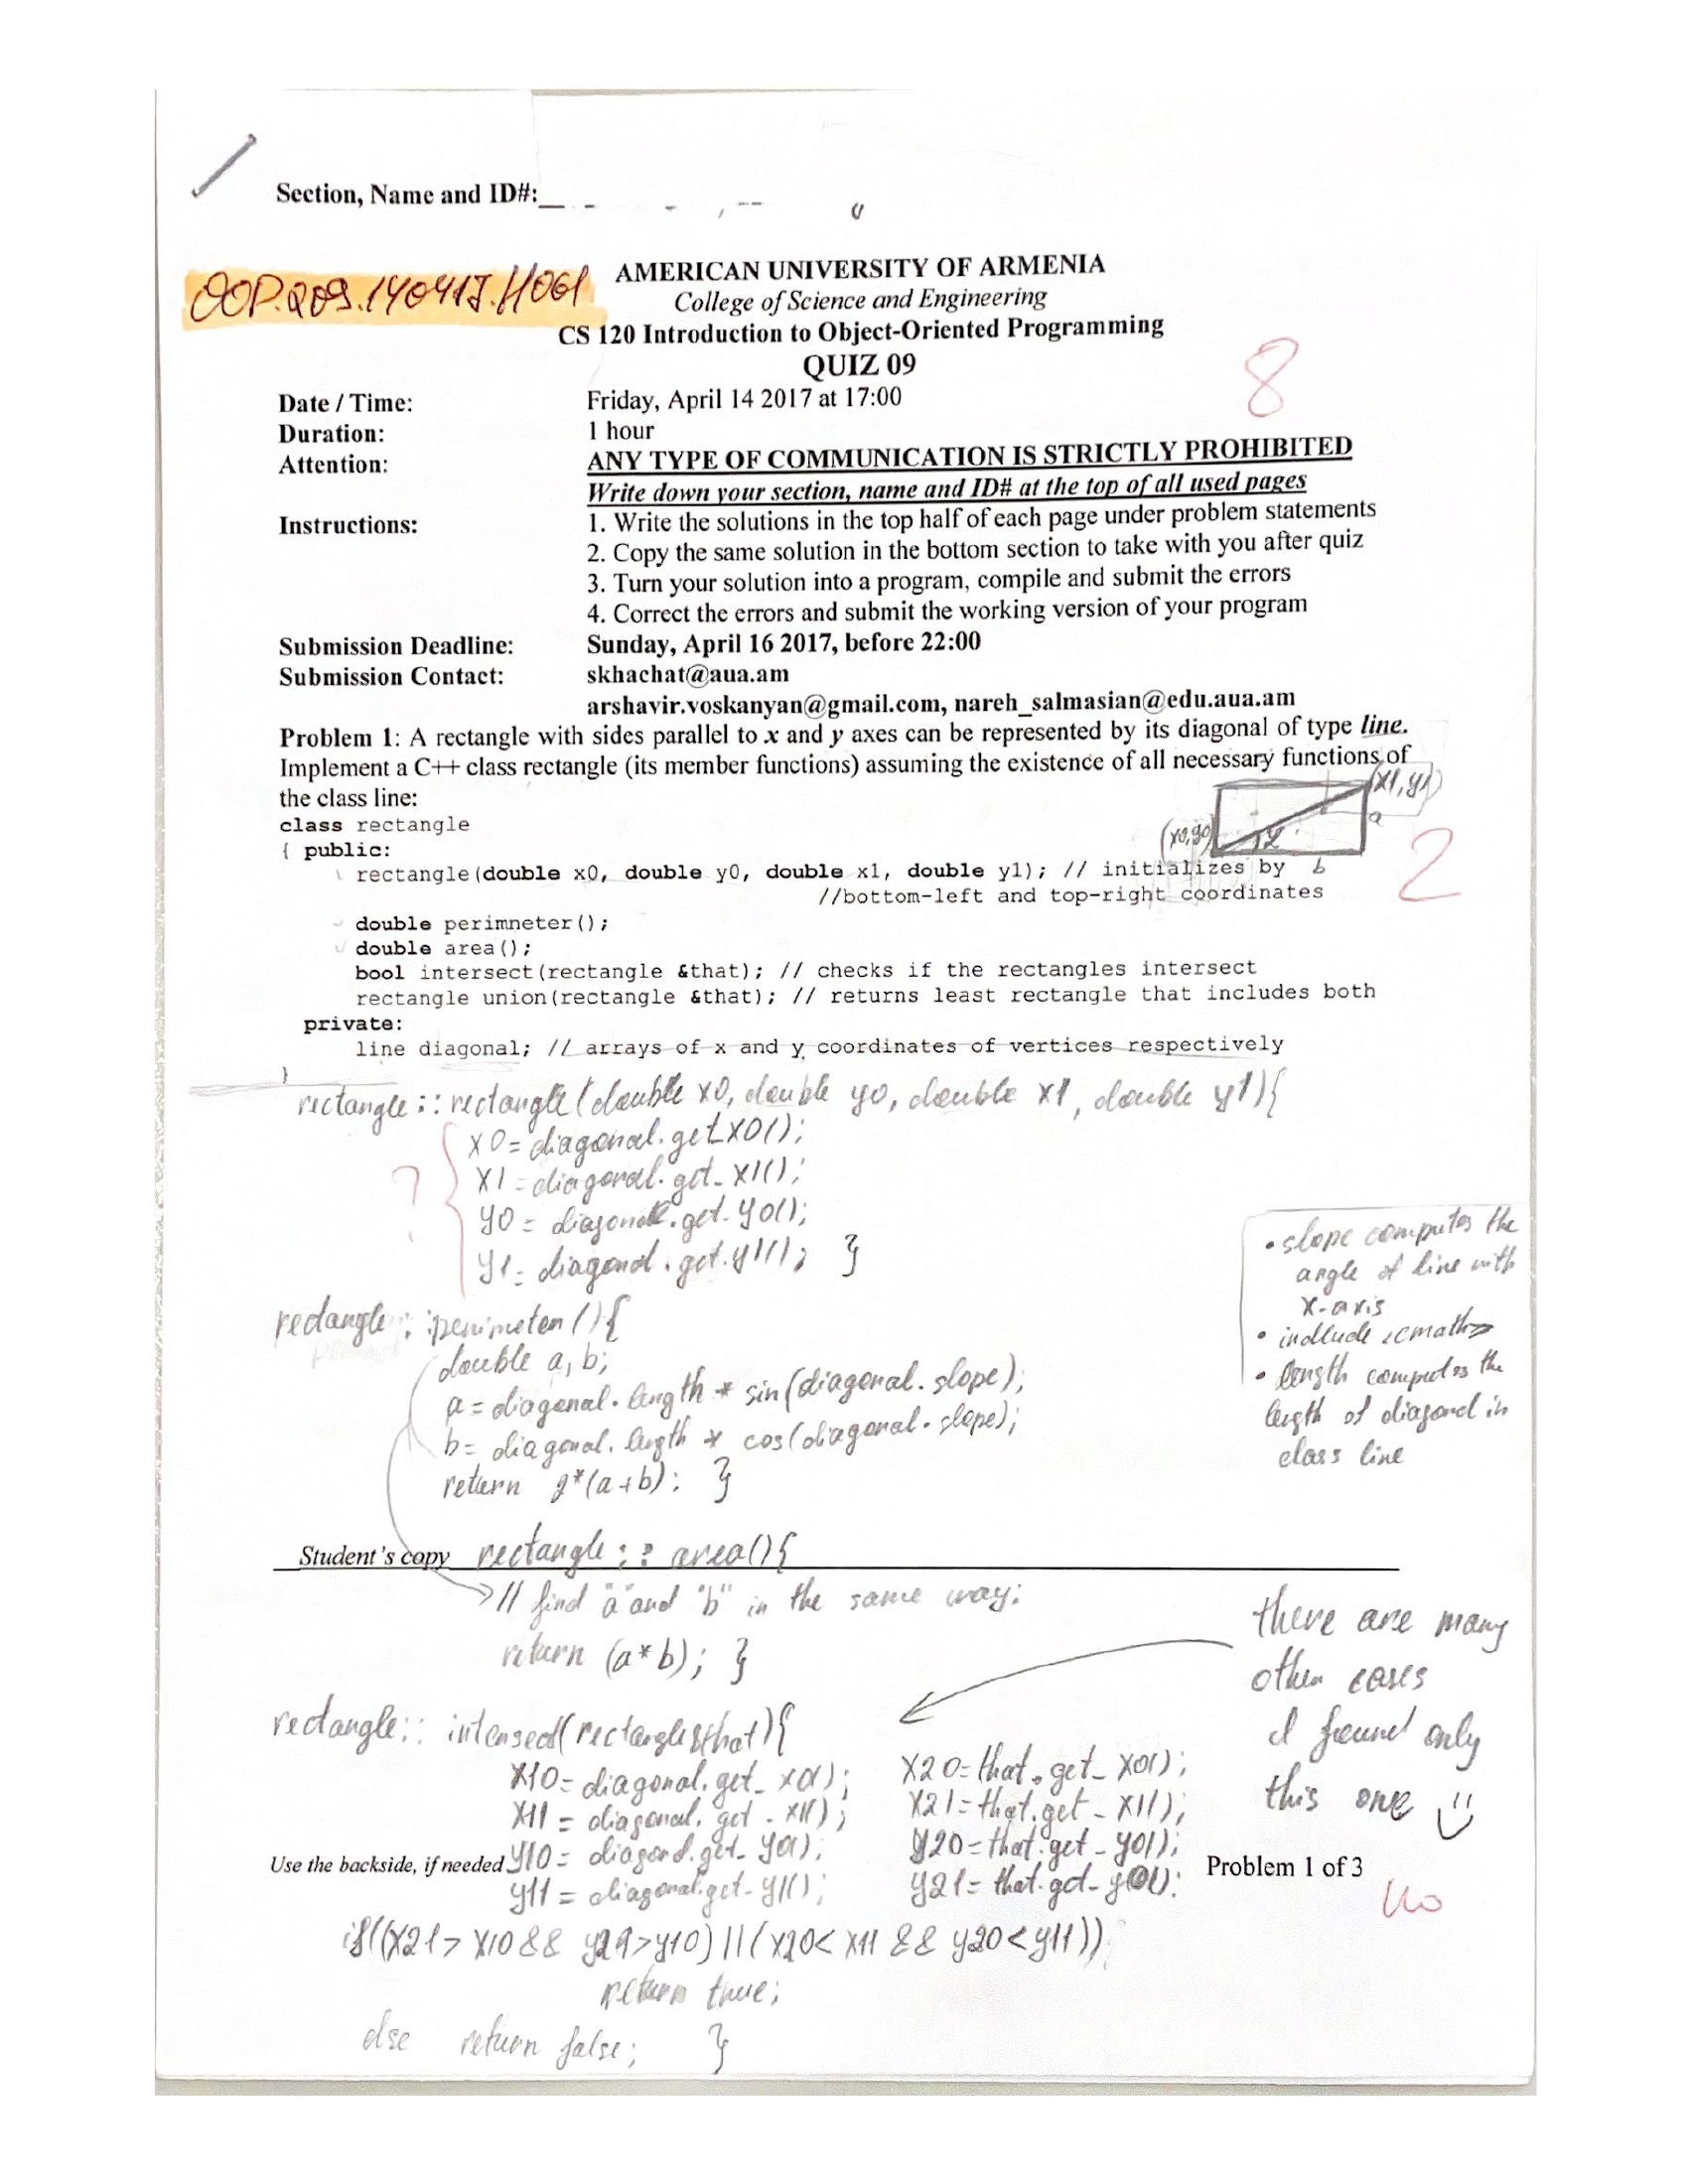 Section, Name and ID#:
OOP.209.140417.H061
AMERICAN UNIVERSITY OF ARMENIA
College of Science and Engineering
CS 120 Introduction to Object-Oriented Programming
QUIZ 09
8
Date / Time: Friday, April 14 2017 at 17:00
Duration: 1 hour
Attention: ANY TYPE OF COMMUNICATION IS STRICTLY PROHIBITED
Write down your section, name and ID# at the top of all used pages
Instructions: 1. Write the solutions in the top half of each page under problem statements
2. Copy the same solution in the bottom section to take with you after quiz
3. Turn your solution into a program, compile and submit the errors
4. Correct the errors and submit the working version of your program
Submission Deadline: Sunday, April 16 2017, before 22:00
Submission Contact: skhachat@aua.am
arshavir.voskanyan@gmail.com, nareh_salmasian@edu.aua.am
Problem 1: A rectangle with sides parallel to x and y axes can be represented by its diagonal of type line.
Implement a C++ class rectangle (its member functions) assuming the existence of all necessary functions of
the class line:
(x1, y1)
a
(x0,y0)
b
2
class rectangle
{ public:
rectangle(double x0, double y0, double x1, double y1); // initializes by
//bottom-left and top-right coordinates
double perimneter();
double area();
bool intersect(rectangle &that); // checks if the rectangles intersect
rectangle union(rectangle &that); // returns least rectangle that includes both
private:
line diagonal; // arrays of x and y coordinates of vertices respectively
}
rectangle :: rectangle (double x0, double y0, double x1, double y1){
x0 = diagonal. get_x0();
x1 = diagonal. get_x1();
?
y0 = diagonal. get_y0();
y1 = diagonal. get_y1(); }
• slope computes the
angle of line with
x-axis
• indlude <cmath>
• length computes the
length of diagonal in
class line
rectangle :: perimeter () {
double a, b;
a = diagonal. length * sin(diagonal. slope);
b = diagonal. length * cos(diagonal. slope);
return 2*(a+b); }
Student's copy rectangle :: area(){
// find "a" and "b" in the same way;
return (a*b); }
there are many
other cases
I found only
this one
rectangle :: intersect(rectangle&that){
x10 = diagonal. get_x0(); x20 = that. get_x0();
x11 = diagonal. get_x1(); x21 = that. get_x1();
y10 = diagonal. get_y0(); y20 = that. get_y0();
Use the backside, if needed
Problem 1 of 3
y11 = diagonal. get_y1(); y21 = that. get_y1();
no
if((x21 > x10 && y21 > y10) || (x20 < x11 && y20 < y11))
return true;
else return false; }